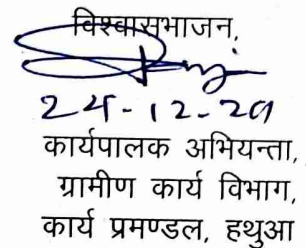 विश्वासभाजन,
24-12-20
कार्यपालक अभियन्ता,
ग्रामीण कार्य विभाग,
कार्य प्रमण्डल, हथुआ